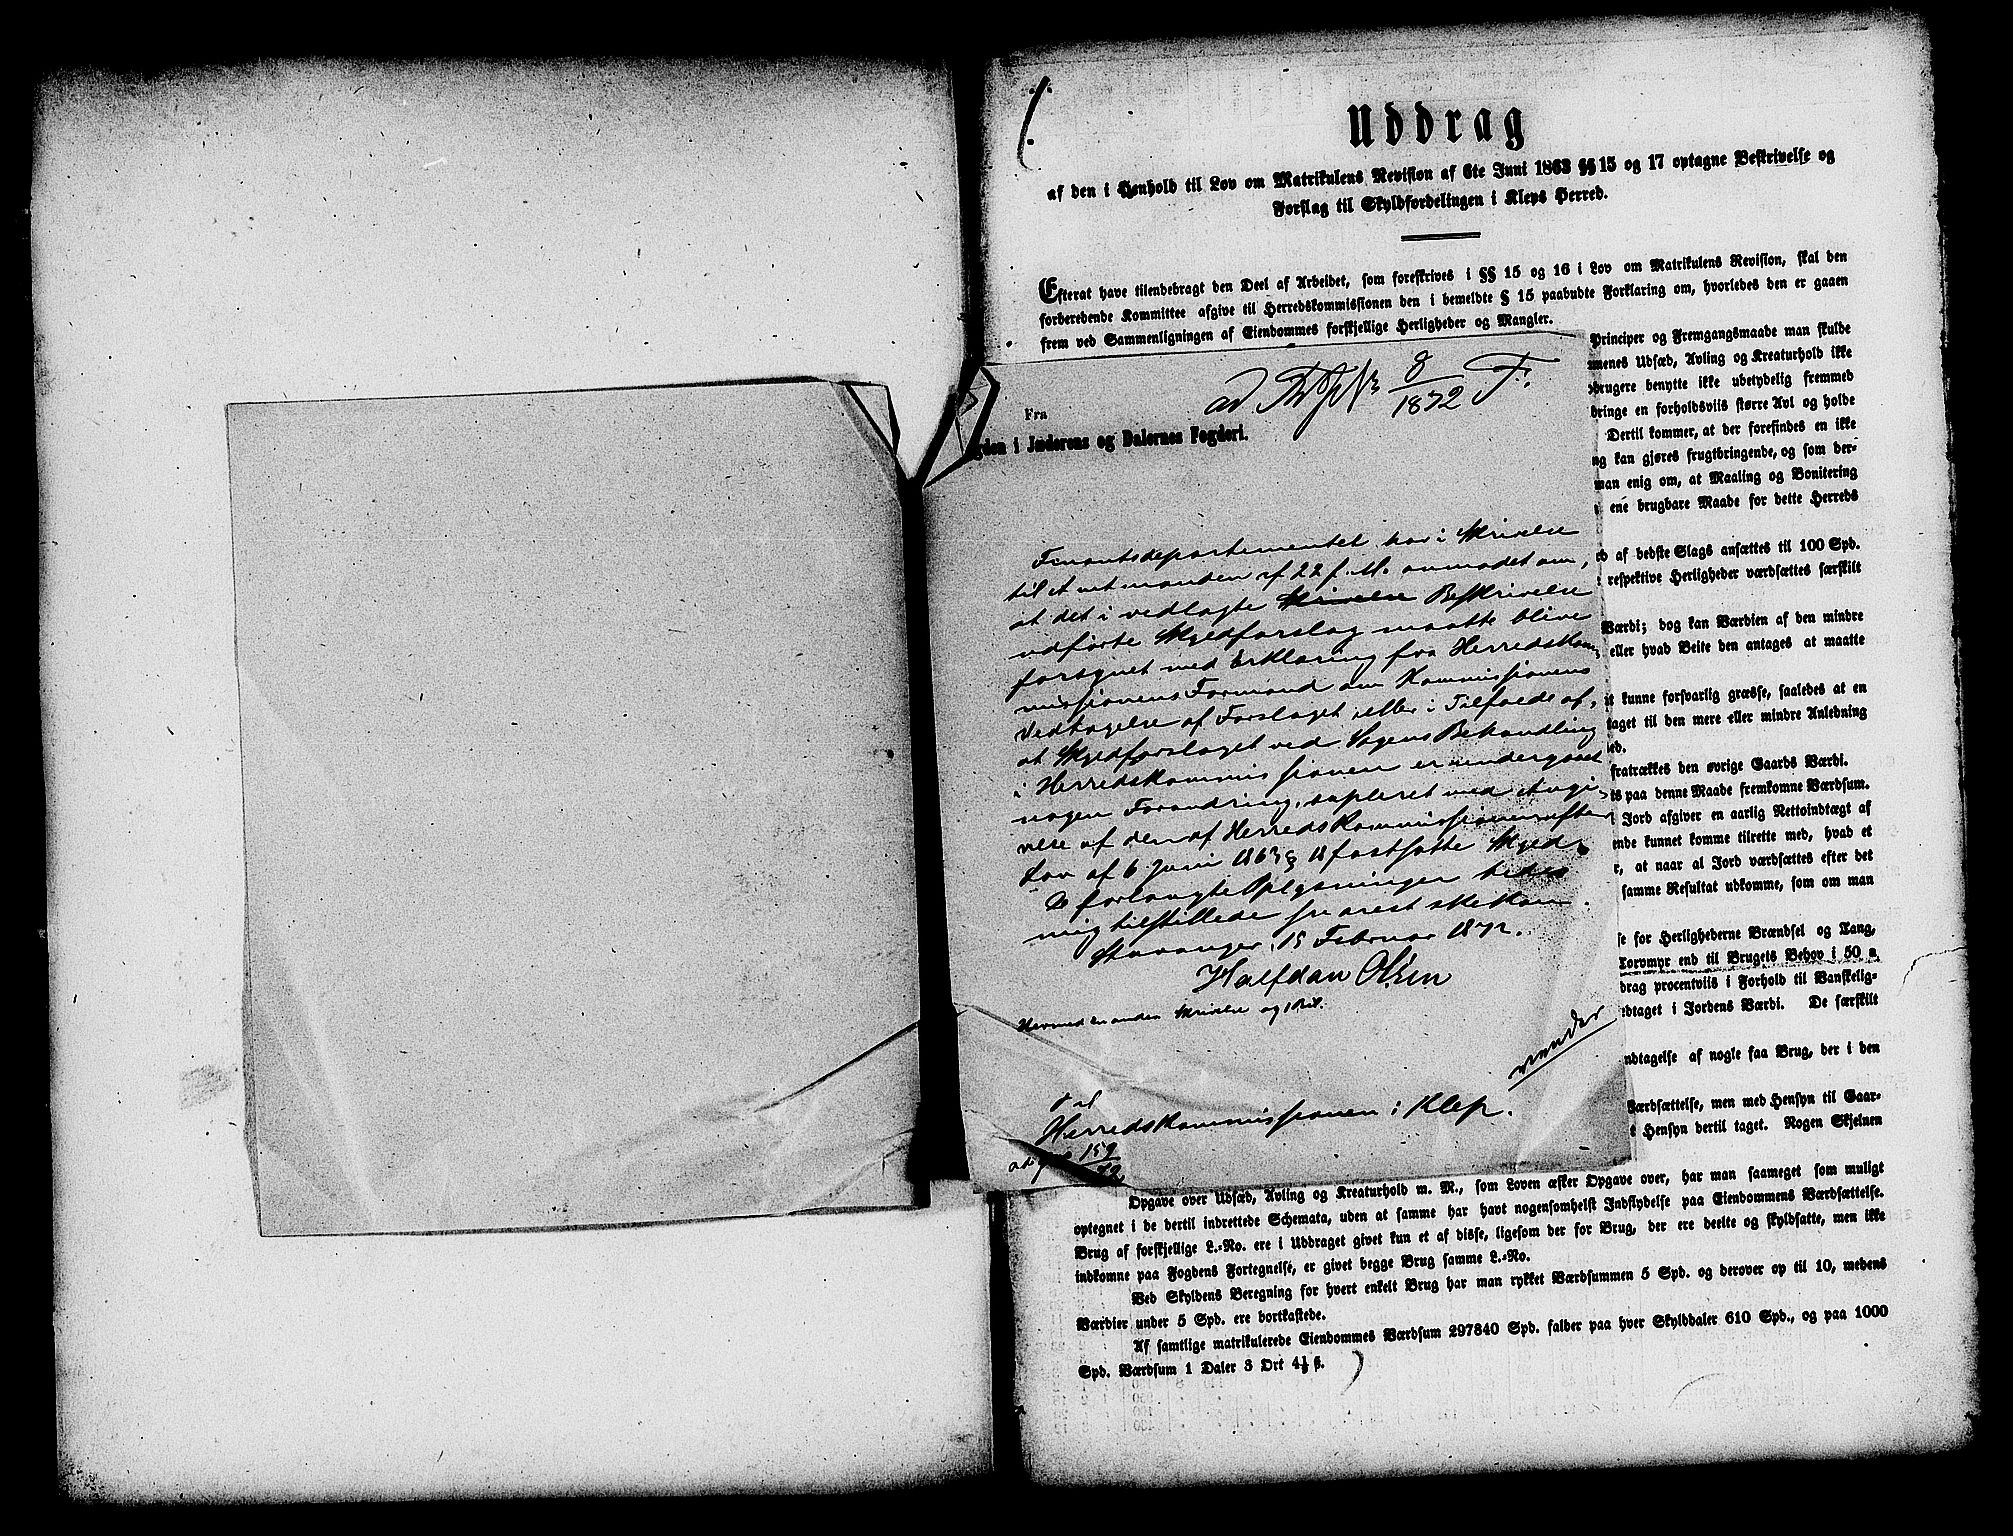 Uddrag
af den i Henhold til Lov om Matrikulens Revision af 6te Juni 1863 §§ 15 og 17 optagne Beskrivelse og
Forslag til Skyldfordelingen i Kleps Herred.
Efterat have tilendebragt den Deel af Arbeidet, som foreskrives i §§ 15 og 16 i Lov om Matrikulens Revision, skal den
forberedende Kommittee afgive til Herredskommissionen den i bemeldte § 15 paabudte Forklaring om, hvorledes den er gaaen
frem ved Sammenligningen af Eiendommes forskjellige Herligheder og Mangler.
Principer og Fremgangsmaade man skulde
menes Udsæd, Avling og Kreaturhold ikke
brugere benytte ikke ubetydelig fremmed
dringe en forholdsviis større Avl og holde
Dertil kommer, at der forefindes en ikke
ng kan gjøres frugtbringende, og som der-
man enig om, at Maaling og Bonitering
ene brugbare Maade for dette Herreds
af bedste Slags ansættes til 100 Spd.
respektive Herligheder værdsættes særskilt
Værdi; dog kan Værdien af den mindre
eller hvad Beite den antages at maatte
t kunne forsvarlig græsse, saaledes at en
taget til den mere eller mindre Anledning
ed.
fratrækkes den øvrige Gaards Værdi.
ts paa denne Maade fremkomne Værdsum.
Jord afgiver en aarlig Nettoindtægt af
ende kunnet komme tilrette med, hvad et
r, at naar al Jord værdsættes efter det
samme Resultat udkomme, som om man
se for Herlighederne Brændsel og Tang,
Torvmyr end til Brugets Behov i 50 a
drag procentviis i Forhold til Vanskelig-
edtaget i Jordens Værdi. De særskilt
ndtagelse af nogle faa Brug, der i den
Værdsættelse, men med Hensyn til Gaar-
t Hensyn dertil taget. Nogen Skjelnen
Opgave over Udsæd, Avling og Kreaturhold m. M., som Loven æsker Opgave over, har man saameget som muligt
optegnet i de dertil indrettede Schemata, uden at samme har havt nogensomhelst Indflydelse paa Eiendommens Værdsættelse.
Brug af forskjellige L.-No. ere i Uddraget givet kun et af disse, ligesom der for Brug, der ere deelte og skyldsatte, men ikke
indkomne paa Fogdens Fortegnelse, er givet begge Brug samme L.-No.
Ved Skyldens Beregning for hvert enkelt Brug har man rykket Værdsummen 5 Spd. og derover op til 10, medens
Værdier under 5 Spd. ere bortkastede.
Af samtlige matrikulerede Eiendommes Værdsum 297840 Spd. falder paa hver Skylddaler 610 Spd., og paa 1000
Spd. Værdsum 1 Daler 3 Ort 4½ ß.
ad 8/1872 F.
Fra
gden i Jæderens og Dalernes Fogderi.
Finantsdepartementet har i Skrivelse
til Amtmanden af 22 f. M. anmodet om,
at det i vedlagte Skrivelse Beskrivelse
udførte Skyldforslag maatte blive
forsynet med Erklæring fra Herredskom-
missionens Formand om Kommissionens
Vedtagelse af Forslaget eller i Tilfælde af,
at Skyldforslaget ved Sagens Behandling
i Herredskommissionen er undergaaet
nogen Forandring, supleret med Angi-
velse af den af Herredskommissionen efter
Lov af 6 Juni 1863 § 18 fastsatte Skyld.
De forlangte Oplysninger bedes
mig tilstillede snarest ske kan.
Stavanger, 15 Februar 1872.
Halfdan Olsen
Hermed en anden Skrivelse og 1 Bil.
vender
Til
Herredskommissionen i Klep.
159/72